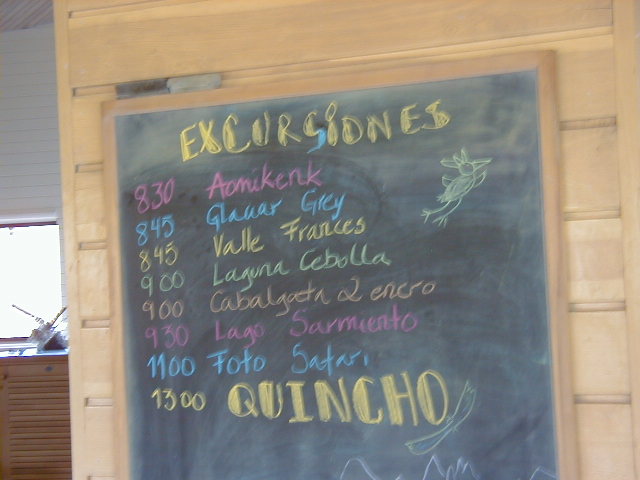 EXCURSIONES
830 Aonikenk
845 Glaciar Grey
845 Valle Frances
900 Laguna Cebolla
900 Cabalgata 2 enero
930 Lago Sarmiento
1100 Foto Safari
1300 QUINCHO